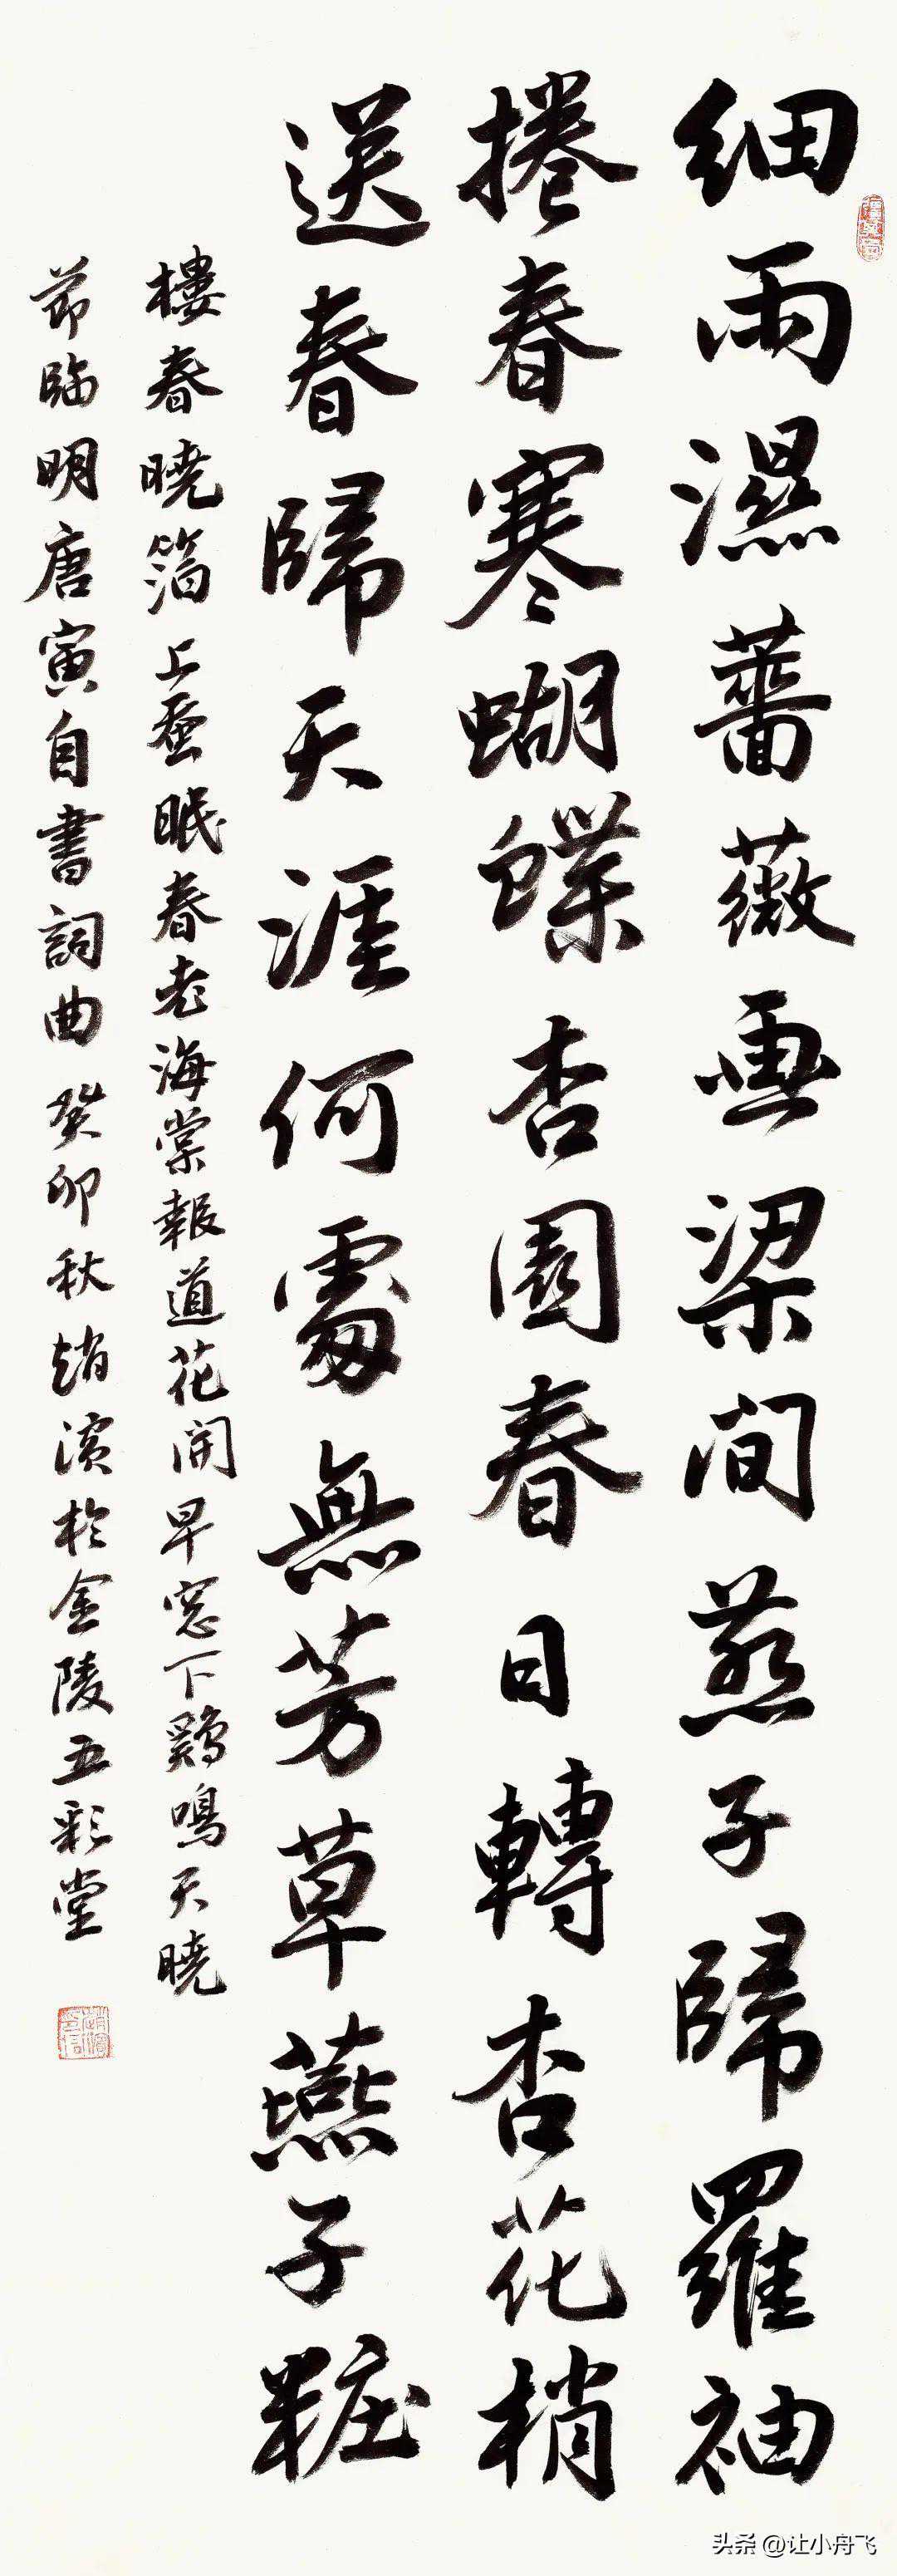 细雨濕薔薇画梁间燕子歸羅袖
捲春寒蝴蝶杏園春日轉杏花梢
送春歸天涯何處無芳草燕子粧
樓春曉箔上蚕眠春老海棠報道花開早窓下鷄鳴天曉
節臨明唐寅自書詞曲癸卯秋趙濱於金陵五彩堂
头条 @让小舟飞